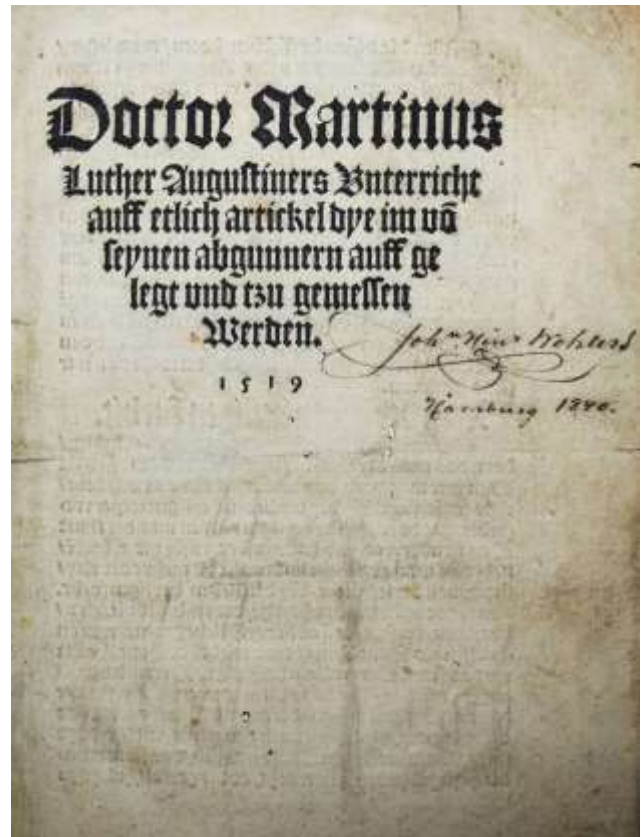 Doctor Martinus
Luther Augustiners Vnterricht
auff etlich artickel dye im vō
seynen abgunnern auff ge
legt vnd tzu gemessen
Werden.
Joh⁠n Hinr Wohlers
1519
Hamburg 1840.